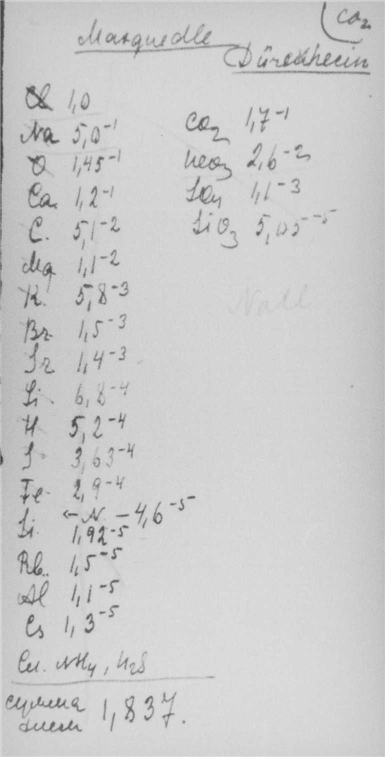 CO₂
Maxquelle
Dürckheim
Cl 1,0
Na 5,0⁻¹
O 1,45⁻¹
Ca 1,2⁻¹
C. 5,1⁻²
Mg 1,1⁻²
K. 5,8⁻³
Br 1,5⁻³
Sr 1,4⁻³
Li 6,8⁻⁴
H 5,2⁻⁴
S 3,63⁻⁴
Fe 2,9⁻⁴
← N. – 4,6⁻⁵
Si. 1,92⁻⁵
Rb. 1,5⁻⁵
Al 1,1⁻⁵
Cs 1,3⁻⁵
NH₄, H₂S
сумма
1,837.
CO₂ 1,7⁻¹
HCO₃ 2,6⁻²
SO₄ 1,1⁻³
SiO₃ 5,05⁻⁵